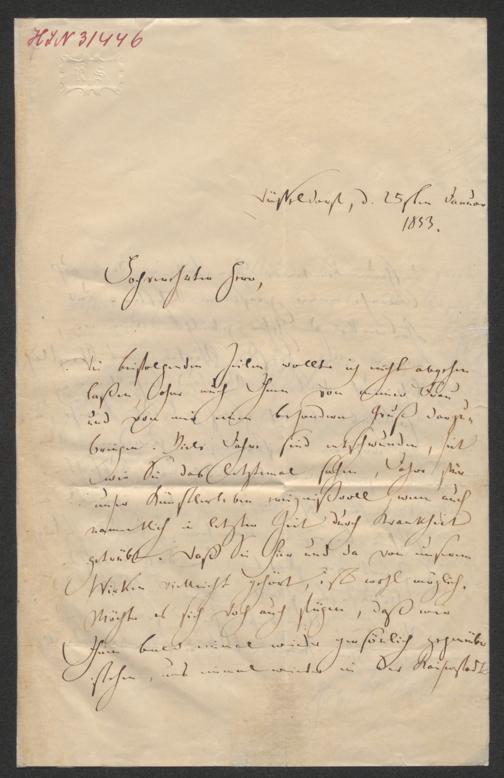 HIN 31446
R S
Düsseldorf, d. 25sten Januar
1853.
Hochverehrter Herr,
Die beifolgenden Zeilen wollte ich nicht abgehen
laßen, ohne auch Ihnen von meiner Frau
und von mir einen besondern Gruß darzu-
bringen. Viele Jahre sind entschwunden, seit
wir Sie das letztemal sahen, Jahre, für
unser Künstlerleben ereignißvoll, wenn auch
namentlich in letzter Zeit durch Krankheit
getrübt. Daß Sie hier und da von unserm
Wirken vielleicht gehört, ist wohl möglich.
Möchte es sich doch auch fügen, daß wir
Ihnen bald einmal wieder persönlich gegenüber
stehen, uns einmal wieder in der Kaiserstadt